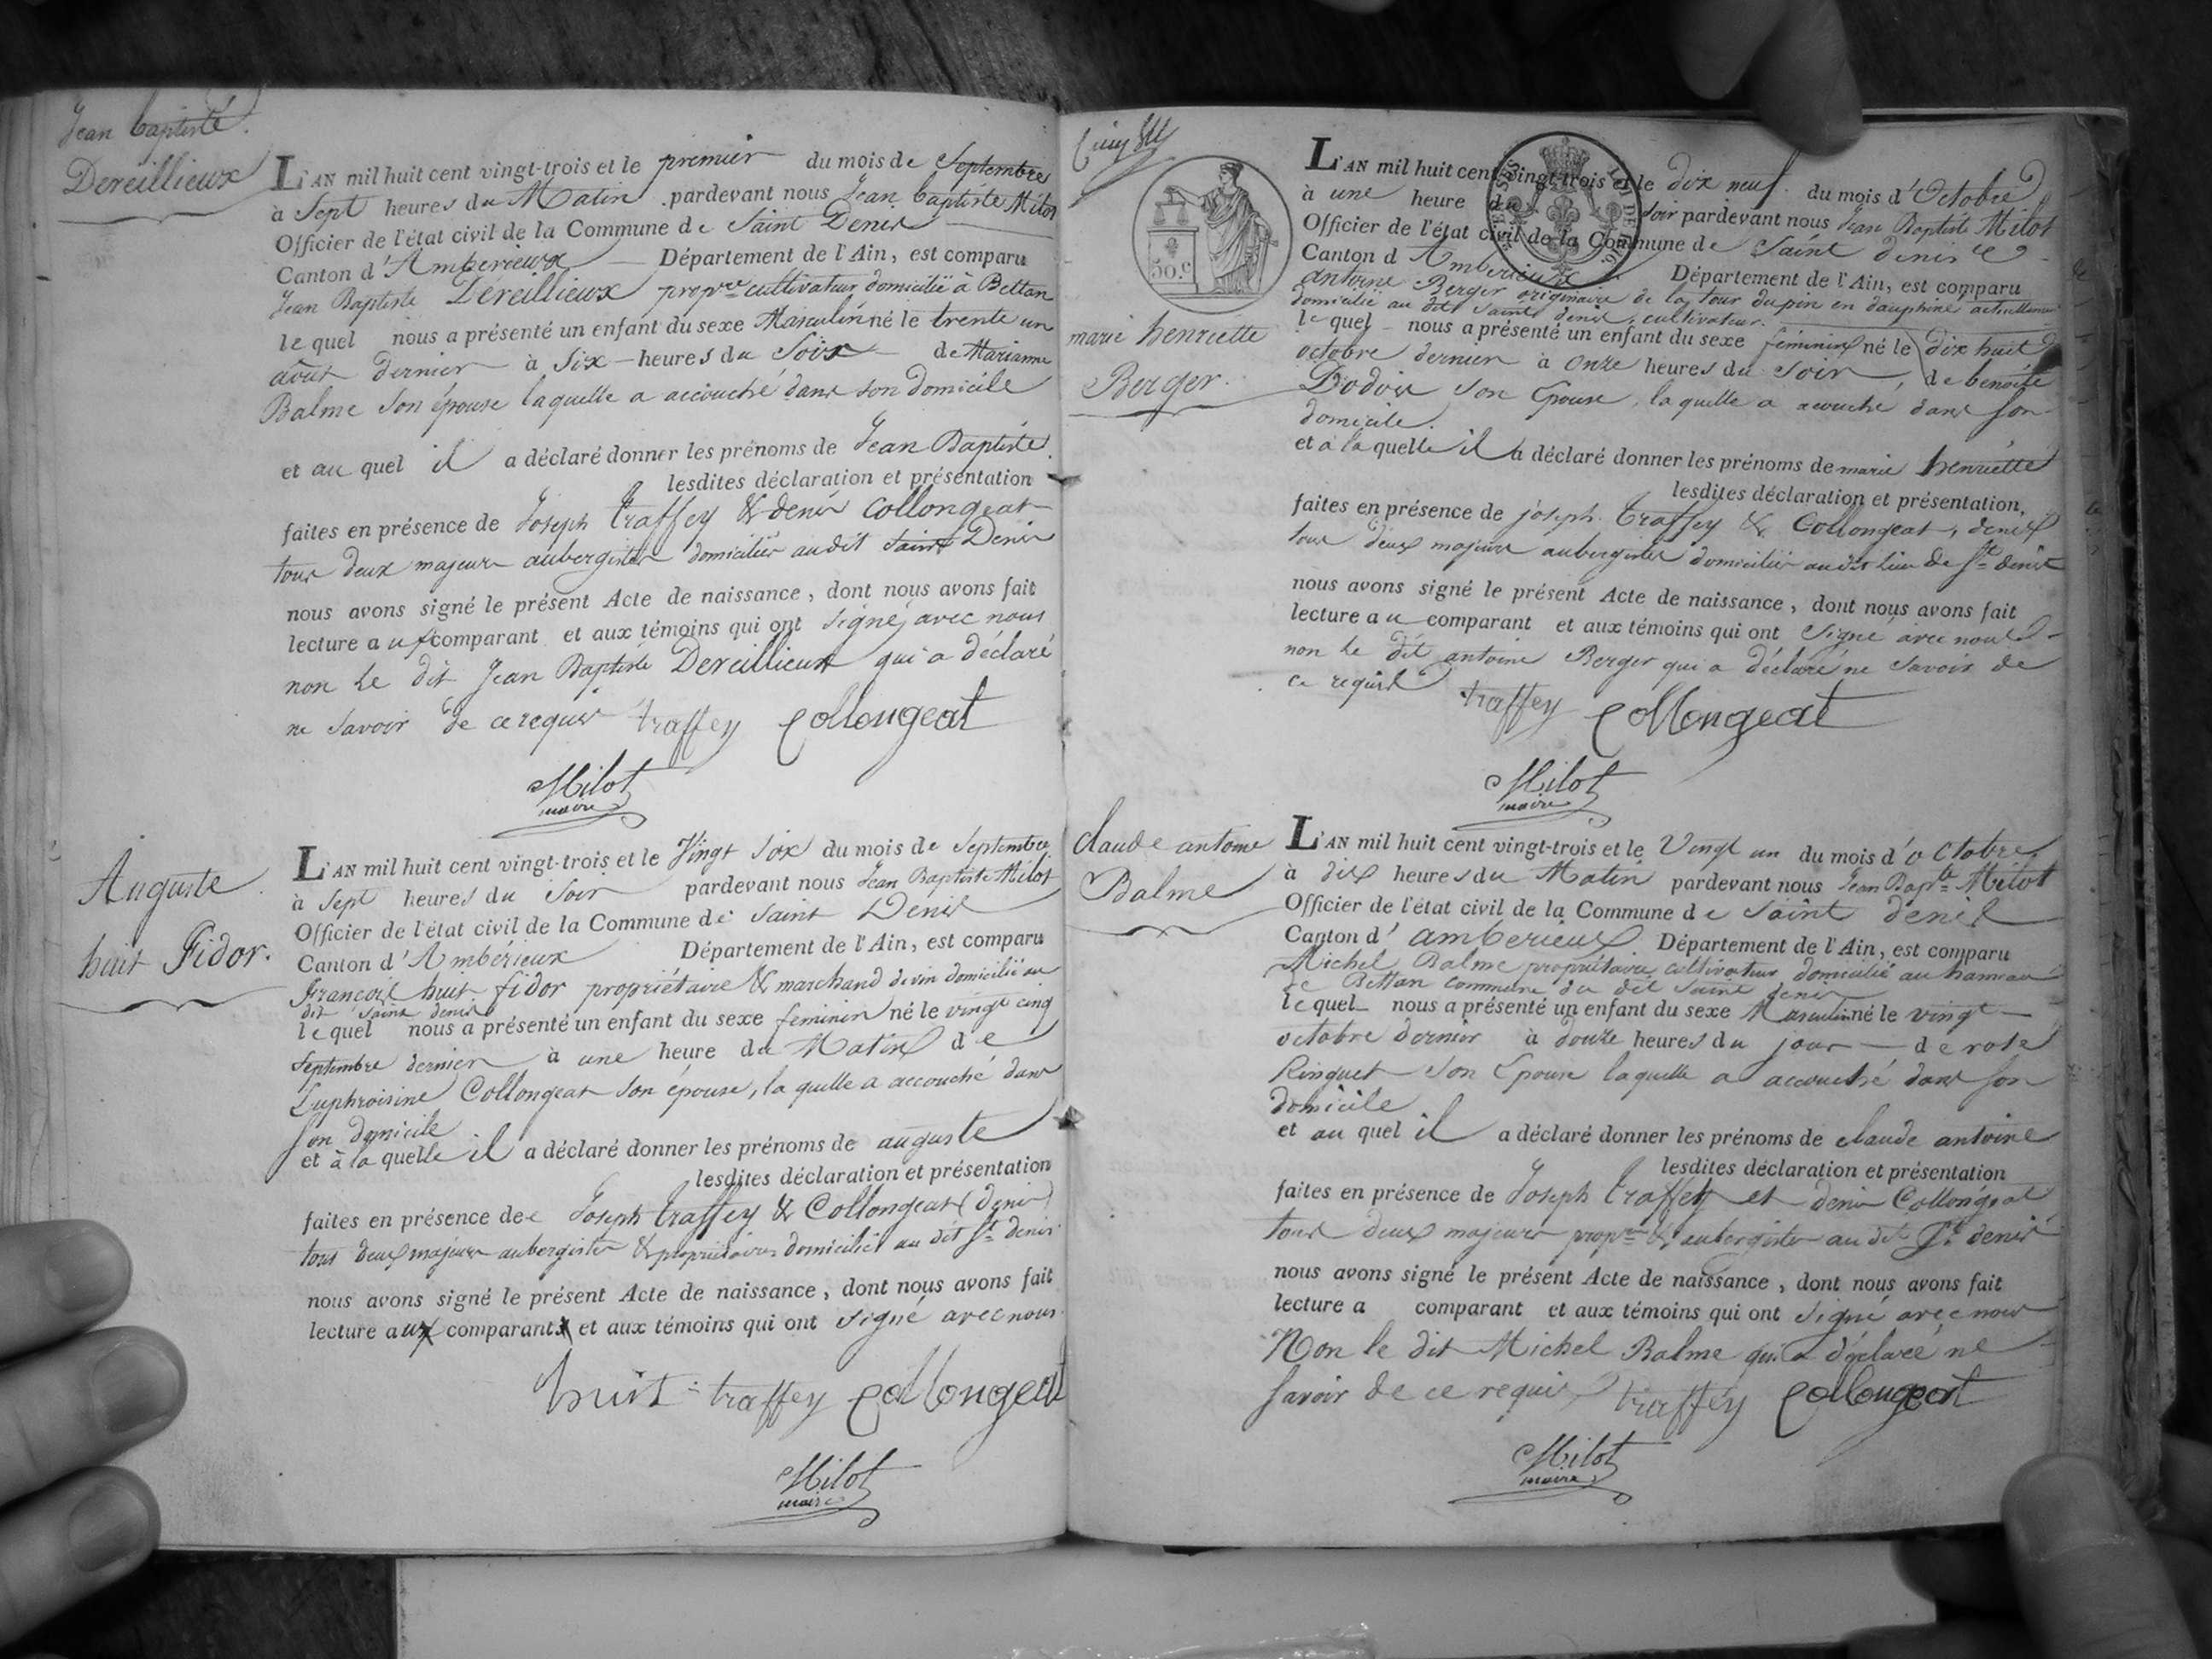 Jean baptiste
Dereillieux
L'AN mil huit cent vingt-trois et le premier du mois de Septembre
à Sept heures du Matin pardevant nous Jean baptiste Milot
Officier de l'état civil de la Commune de Saint Denis
Canton d'Amberieux Département de l'Ain, est comparu
Jean Baptiste Dereillieux propre cultivateur domicilié à Bettan
le quel nous a présenté un enfant du sexe Masculin né le trente un
août dernier à Six heures du Soir de Marianne
Balme son épouse laquelle a accouché dans son domicile
et au quel il a déclaré donner les prénoms de Jean Baptiste
lesdites déclaration et présentation
faites en présence de Joseph traffey & denis Collongeat
tous deux majeurs aubergistes domiciliés audit Saint Denis
nous avons signé le présent Acte de naissance, dont nous avons fait
lecture au comparant et aux témoins qui ont signé avec nous
non le dit Jean Baptiste Dereillieux qui a déclaré
ne savoir de ce requis traffey Collongeat
Milot
maire
Auguste
huit Fidor.
L'AN mil huit cent vingt-trois et le Vingt Six du mois de Septembre
à Sept heures du Soir pardevant nous Jean Baptiste Milot
Officier de l'état civil de la Commune de Saint Denis
Canton d'Ambérieux Département de l'Ain, est comparu
François huit fidor propriétaire & marchand de vin domicilié au
dit Saint denis
le quel nous a présenté un enfant du sexe feminin né le vingt cinq
Septembre dernier à une heure du Matin de
Euphroisine Collongeat son épouse, la quelle a accouché dans
son domicile
et à la quelle il a déclaré donner les prénoms de auguste
lesdites déclaration et présentation
faites en présence de Joseph traffey & Collongeat (denis)
tous deux majeurs aubergistes & propriétaires domiciliés au dit St denis
nous avons signé le présent Acte de naissance, dont nous avons fait
lecture aux comparants et aux témoins qui ont signé avec nous
huit traffey Collongeat
Milot
maire
50.c
marie henriette
Berger.
L'AN mil huit cent vingt-trois et le dix neuf du mois d'Octobre
à une heure du Soir pardevant nous Jean Baptiste Milot
Officier de l'état civil de la Commune de Saint denis
Canton d Amberieux Département de l'Ain, est comparu
antoine Berger originaire de la tour dupin en dauphiné actuellement
domicilié au dit Saint denis, cultivateur.
le quel nous a présenté un enfant du sexe féminin né le dix huit
octobre dernier à onze heures du Soir de benoite
Dodoir son Epouse, la quelle a accouché dans son
domicile.
et à la quelle il a déclaré donner les prénoms de marie henriette
lesdites déclaration et présentation,
faites en présence de joseph traffey & Collongeat, denis
tous deux majeurs aubergistes domiciliés au dit lieu de St denis
nous avons signé le présent Acte de naissance, dont nous avons fait
lecture au comparant et aux témoins qui ont Signé avec nous
non le dit antoine Berger qui a déclaré ne Savoir de
ce requis traffey Collongeat
Milot
maire
claude antoine
Balme
L'AN mil huit cent vingt-trois et le Vingt un du mois d'octobre
à dix heures du Matin pardevant nous Jean Bapte Milot
Officier de l'état civil de la Commune de Saint denis
Canton d'amberieux Département de l'Ain, est comparu
Michel Balme propriétaire cultivateur domicilié au hameau
de Bettan commune du dit Saint denis
le quel nous a présenté un enfant du sexe Masculin né le vingt
octobre dernier à douze heures du jour de rose
Ringuet son Epouse laquelle a accouché dans son
domicile
et au quel il a déclaré donner les prénoms de claude antoine
lesdites déclaration et présentation
faites en présence de Joseph traffey et denis Collongeat
tous deux majeurs propres & aubergistes au dit St denis
nous avons signé le présent Acte de naissance, dont nous avons fait
lecture a comparant et aux témoins qui ont signé avec nous
Non le dit Michel Balme qui a déclaré ne
savoir de ce requis traffey Collongeat
Milot
maire